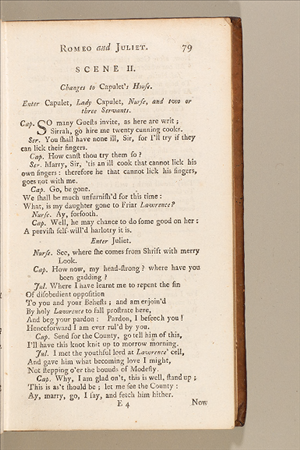 ROMEO and JULIET. 79
SCENE II.
Changes to Capulet's House.
Enter Capulet, Lady Capulet, Nurse, and two or
three Servants.
Cap. SO many Guests invite, as here are writ;
Sirrah, go hire me twenty cunning cooks.
Ser. You shall have none ill, Sir, for I'll try if they
can lick their fingers.
Cap. How canst thou try them so?
Ser. Marry, Sir, 'tis an ill cook that cannot lick his
own fingers: therefore he that cannot lick his fingers,
goes not with me.
Cap. Go, be gone.
We shall be much unfurnish'd for this time:
What, is my daughter gone to Friar Lawrence?
Nurse. Ay, forsooth.
Cap. Well, he may chance to do some good on her:
A prevish self-will'd harlotry it is.
Enter Juliet.
Nurse. See, where she comes from Shrift with merry
Look.
Cap. How now, my head-strong? where have you
been gadding?
Jul. Where I have learnt me to repent the sin
Of disobedient opposition
To you and your Behests; and am enjoin'd
By holy Lawrence to fall prostrate here,
And beg your pardon: Pardon, I beseech you!
Henceforward I am ever rul'd by you.
Cap. Send for the County, go tell him of this,
I'll have this knot knit up to morrow morning.
Jul. I met the youthful lord at Lawrence' cell,
And gave him what becoming love I might,
Not stepping o'er the bounds of Modesty.
Cap. Why, I am glad on't, this is well, stand up;
This is as't should be; let me see the County:
Ay, marry, go, I say, and fetch him hither.
E 4 Now